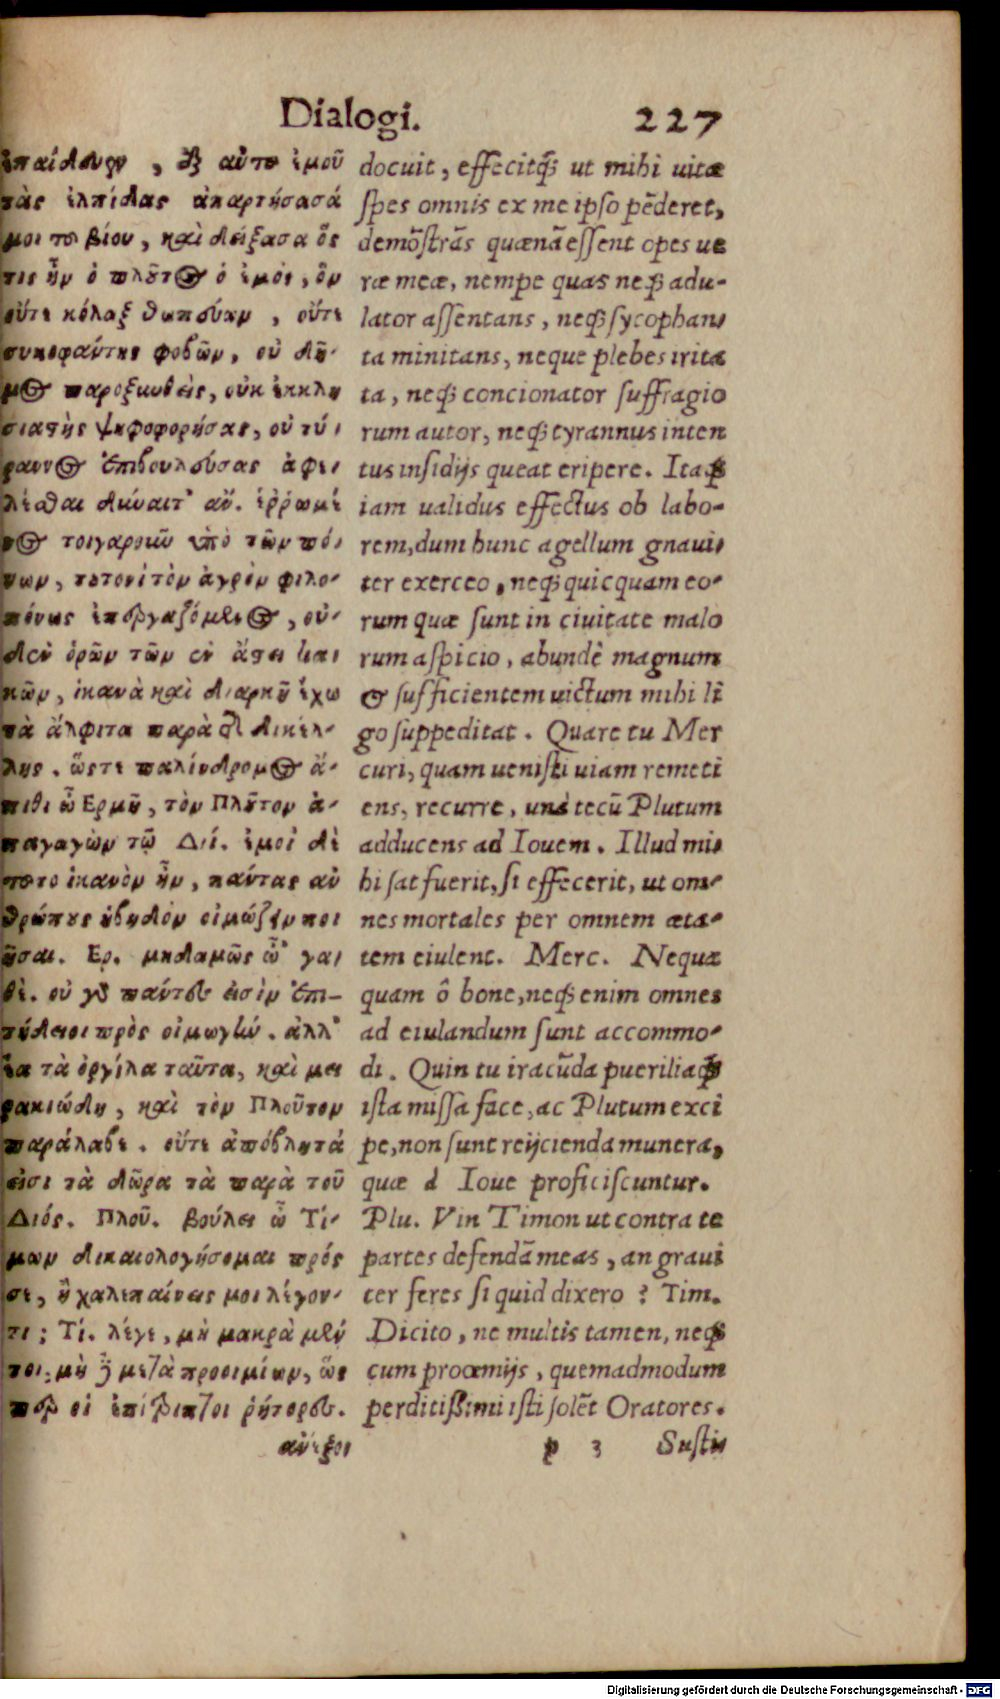 Dialogi. 227
ἐπαίδευεν, ἐξ αὐτῦ ἐμοῦ
τὰς ἐλπίδας ἀπαρτήσασά
μοι τῦ βίου, καὶ δείξασα ὅς
τις ἦν ὁ πλῦτος ὁ ἐμὸς, ὃν
οὔτε κόλαξ θωπεύων, οὔτε
συκοφάντης φοβῶν, οὐ δῆ-
μος παροξυνθεὶς, οὐκ ἐκκλη
σιαστὴς ψηφοφορήσας, οὐ τύ-
ραννος ἐπιβουλεύσας ἀφε-
λέσθαι δύναιτ' ἄν. ἐῤῥωμέ
νος τοιγαροῦν ὑπὸ τῶν πό-
νων, τυτονὶ τὸν ἀγρὸν φιλο-
πόνως ἐπεργαζόμενος, οὐ-
δὲν ὁρῶν τῶν ἐν ἄστει κα
κῶν, ἱκανὰ καὶ διαρκῆ ἔχω
τὰ ἄλφιτα παρὰ τῆς δικέλ-
λης. ὥστε παλίνδρομος ἄ-
πιθι ὦ Ερμῆ, τὸν Πλῦτον ἀ-
παγαγὼν τῷ Διΐ. ἐμοὶ δὲ
τῦτο ἱκανὸν ἦν, πάντας ἀν
θρώπυς ἡβηδὸν οἰμώζειν ποι
ῆσαι. Ερ. μηδαμῶς ὦ' γα-
θέ. οὐ γὰρ πάντες εἰσὶν ἐπι-
τήδειοι πρὸς οἰμωγήν. ἀλλ'
ἔα τὰ ὀργίλα ταῦτα, καὶ μει
ρακιώδη, καὶ τὸν Πλοῦτον
παράλαβε. οὔτι ἀπόβλητά
εἰσι τὰ δῶρα τὰ παρὰ τοῦ
Διός. Πλοῦ. βούλει ὦ Τί-
μων δικαιολογήσομαι πρός
σε, ἢ χαλεπαίνεις μοι λέγον-
τι; Τί. λέγε, μὴ μακρὰ μέν
τοι, μὴ δὲ μετὰ προοιμίων, ὥς
περ οἱ ἐπίτριπτοι ῥήτορες.
docuit, effecitq́; ut mihi uitæ
spes omnis ex me ipso pẽderet,
demõstrãs quænã essent opes ue
ræ meæ, nempe quas neq; adu-
lator assentans, neq; sycophan-
ta minitans, neque plebes irita
ta, neq; concionator suffragio
rum autor, neq; tyrannus inten
tus insidijs queat eripere. Itaq;
iam ualidus effectus ob labo-
rem, dum hunc agellum gnaui-
ter exerceo, neq; quicquam eo-
rum quæ sunt in ciuitate malo
rum aspicio, abundè magnum
& sufficientem uictum mihi li
go suppeditat. Quare tu Mer
curi, quam uenisti uiam remeti
ens, recurre, unà tecũ Plutum
adducens ad Iouem. Illud mi-
hi sat fuerit, si effecerit, ut om-
nes mortales per omnem æta-
tem eiulent. Merc. Nequa
quam ô bone, neq; enim omnes
ad eiulandum sunt accommo-
di. Quin tu iracũda pueriliaq;
ista missa face, ac Plutum exci
pe, non sunt reijcienda munera,
quæ à Ioue proficiscuntur.
Plu. Vin Timon ut contra te
partes defendã meas, an graui
ter feres si quid dixero? Tim.
Dicito, ne multis tamen, neq;
cum proœmijs, quemadmodum
perditißimi isti solẽt Oratores.
p 3 Susti-
Digitalisierung gefördert durch die Deutsche Forschungsgemeinschaft - DFG